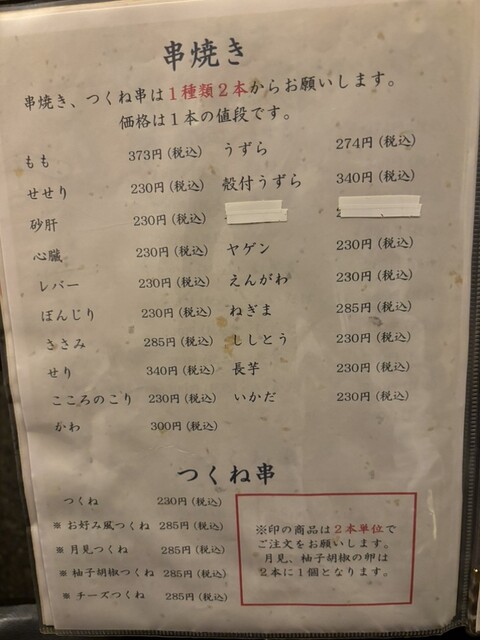 串焼き
串焼き、つくね串は1種類2本からお願いします。
価格は1本の値段です。
もも 373円(税込)
せせり 230円(税込)
砂肝 230円(税込)
心臓 230円(税込)
レバー 230円(税込)
ぼんじり 230円(税込)
ささみ 285円(税込)
せり 340円(税込)
こころのこり 230円(税込)
かわ 300円(税込)
うずら 274円(税込)
殻付うずら 340円(税込)
ヤゲン 230円(税込)
えんがわ 230円(税込)
ねぎま 285円(税込)
ししとう 230円(税込)
長芋 230円(税込)
いかだ 230円(税込)
つくね串
つくね 230円(税込)
※お好み風つくね 285円(税込)
※月見つくね 285円(税込)
※柚子胡椒つくね 285円(税込)
※チーズつくね 285円(税込)
※印の商品は2本単位で
ご注文をお願いします。
月見、柚子胡椒の卵は
2本に1個となります。